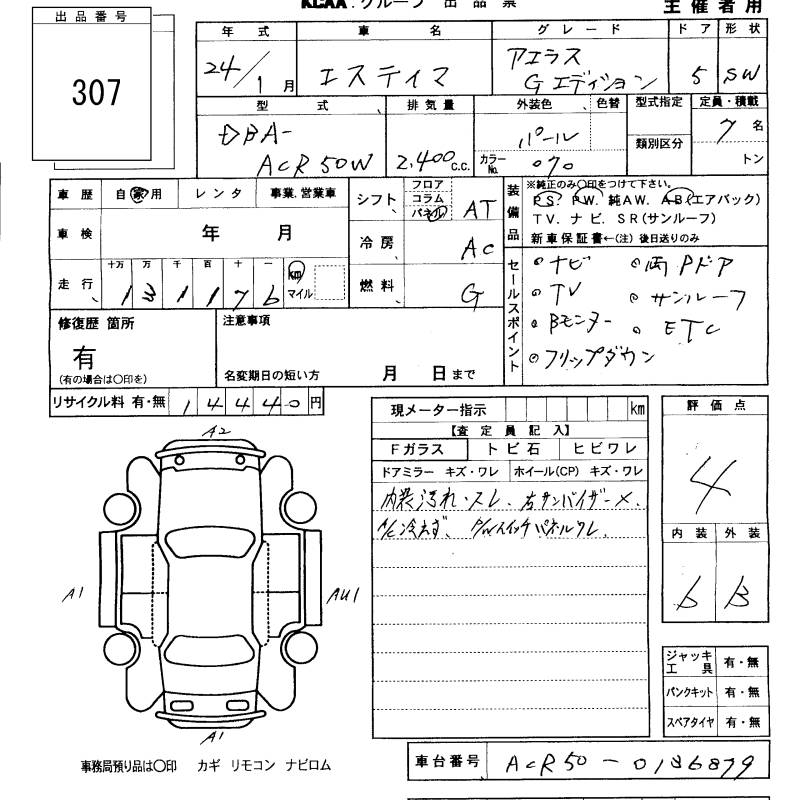 KCAA.グループ 出品票 主催者用
出品番号
307
年式 車名 グレード ドア 形状
24/1月 エスティマ アエラス Gエディション 5 SW
型式 排気量 外装色 色替 型式指定 定員・積載
DBA-ACR50W 2,400c.c. パール カラーNo. 070 類別区分 7名 トン
車歴 自家用 レンタ 事業.営業車
車検 年 月
走行 十万 万 千 百 十 一
131176 km マイル
シフト フロア コラム パネル AT
冷房 AC
燃料 G
装備品 ※純正のみ〇印をつけて下さい。
PS. PW. 純AW. AB(エアバック)
TV. ナビ. SR(サンルーフ)
新車保証書←(注) 後日送りのみ
セールスポイント
・ナビ ・両Pドア
・TV ・サンルーフ
・Bモニター ・ETC
・フリップダウン
修復歴 箇所
有
(有の場合は〇印を)
注意事項
名変期日の短い方 月 日まで
リサイクル料 有・無 14440円
現メーター指示 km
【査定員記入】
Fガラス トビ石 ヒビワレ
ドアミラー キズ・ワレ ホイール(CP) キズ・ワレ
内装汚れ・スレ、右サンバイザー×、
A/C冷えず、 パネルワレ、
評価点
4
内装 外装
b B
A2
A1 AU1
A1
ジャッキ工具 有・無
パンクキット 有・無
スペアタイヤ 有・無
事務局預り品は〇印 カギ リモコン ナビロム
車台番号 ACR50-0136879